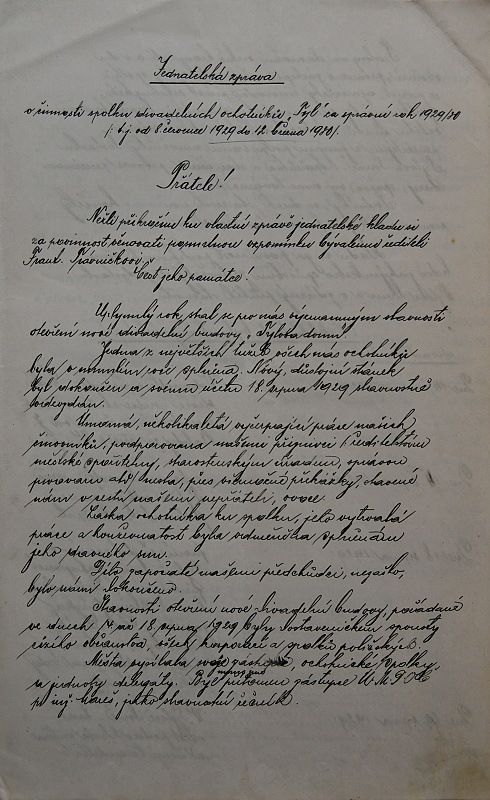 Jednatelská zpráva
o činnosti spolku divadelních ochotníků „Tyl" za správní rok 1929/30
/: t.j. od 8 července 1929 do 12. března 1930/.
Přátelé!
Nežli přikročíme ku vlastní zprávě jednatelské kladu si
za povinnost věnovati posmrtnou vzpomínku bývalému řediteli
Frant. Trávníčkovi.
Čest jeho památce!
Uplynulý rok stal se pro nás významným slavností
otevření nové divadelní budovy „Tylova domu".
Jedna z největších tužeb všech nás ochotníků
byla v minulém roce splněna. Nový, důstojný stánek
byl dokončen a svému účelu 18. srpna 1929 slavnostně
odevzdán.
Úmorná, několikaletá vyčerpající práce našich
činovníků, podporovaná našimi příznivci / ředitelstvím
městské spořitelny, starostenským úřadem, správou
pivovaru atd/ nesla, přes všemožné překážky, stavené
nám v cestu našimi nepřáteli, ovoce.
Láska ochotníka ku spolku, jeho vytrvalá
práce a houževnatost byla odměněna splněním
jeho dávného snu.
Dílo započaté našimi předchůdci, nezašlo,
bylo námi dokončeno.
Slavnosti otevření nové divadelní budovy, pořádané
ve dnech 17. až 18. srpna 1929 byly dostaveníčkem spousty
cizího občanstva, všech korporací a spolků poličských.
Města vyslala svoje zástupce, ochotnické spolky
a jednoty delegáty. Byl přítomen zástupce Ú M D O Č
p. inž. Mareš, jakto slavnostní řečník.